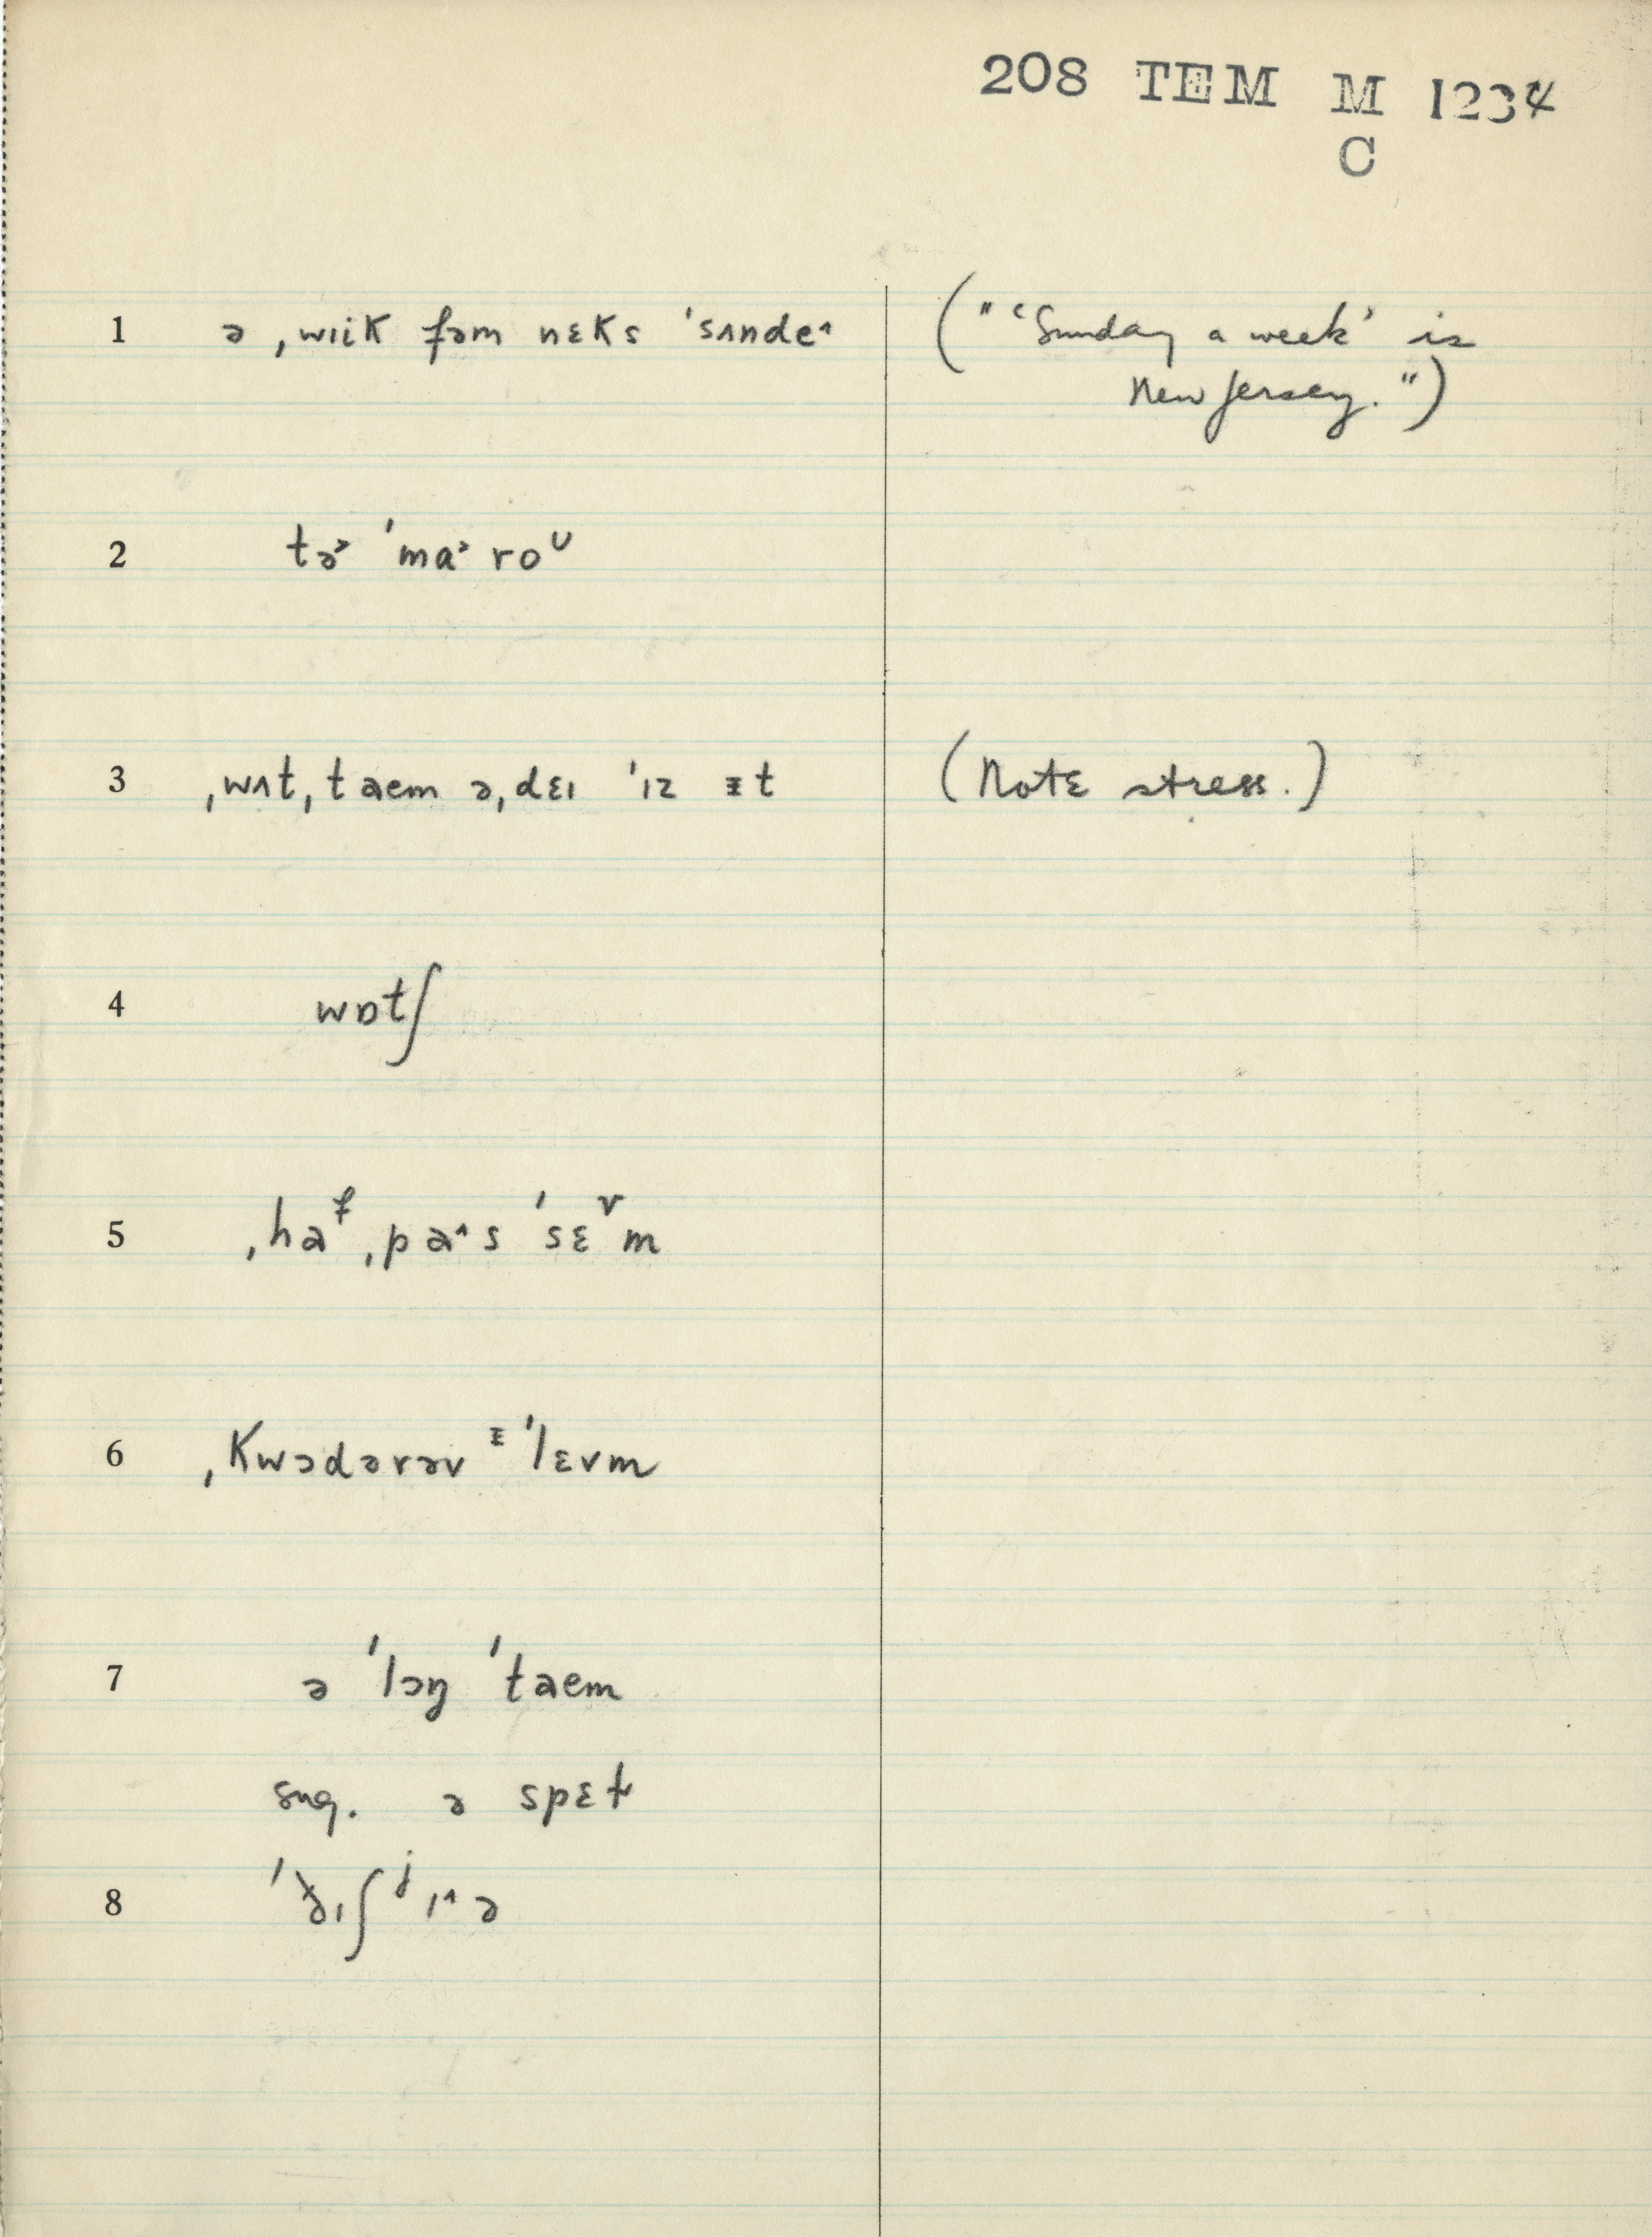 208 TEM M 1234
C
1 ə ˌwɪiK fəm nɛKs ˈsʌnde˄ (" 'Sunday a week' is
New Jersey.")
2 tə˃ ˈma˃roᶷ
3 ˌwʌtˌtaem əˌdɛɪ ˈɪz ᵻt (Note stress.)
4 wɒtʃ
5 ˌhaᶠˌpa˄s ˈsɛᵛm
6 ˌKwɔdərəv ᵻˈlɛvm
7 ə ˈlɔŋ ˈtaem
sug. ə spɛɫ
8 ˈʒɪʃʲɪ˄ə